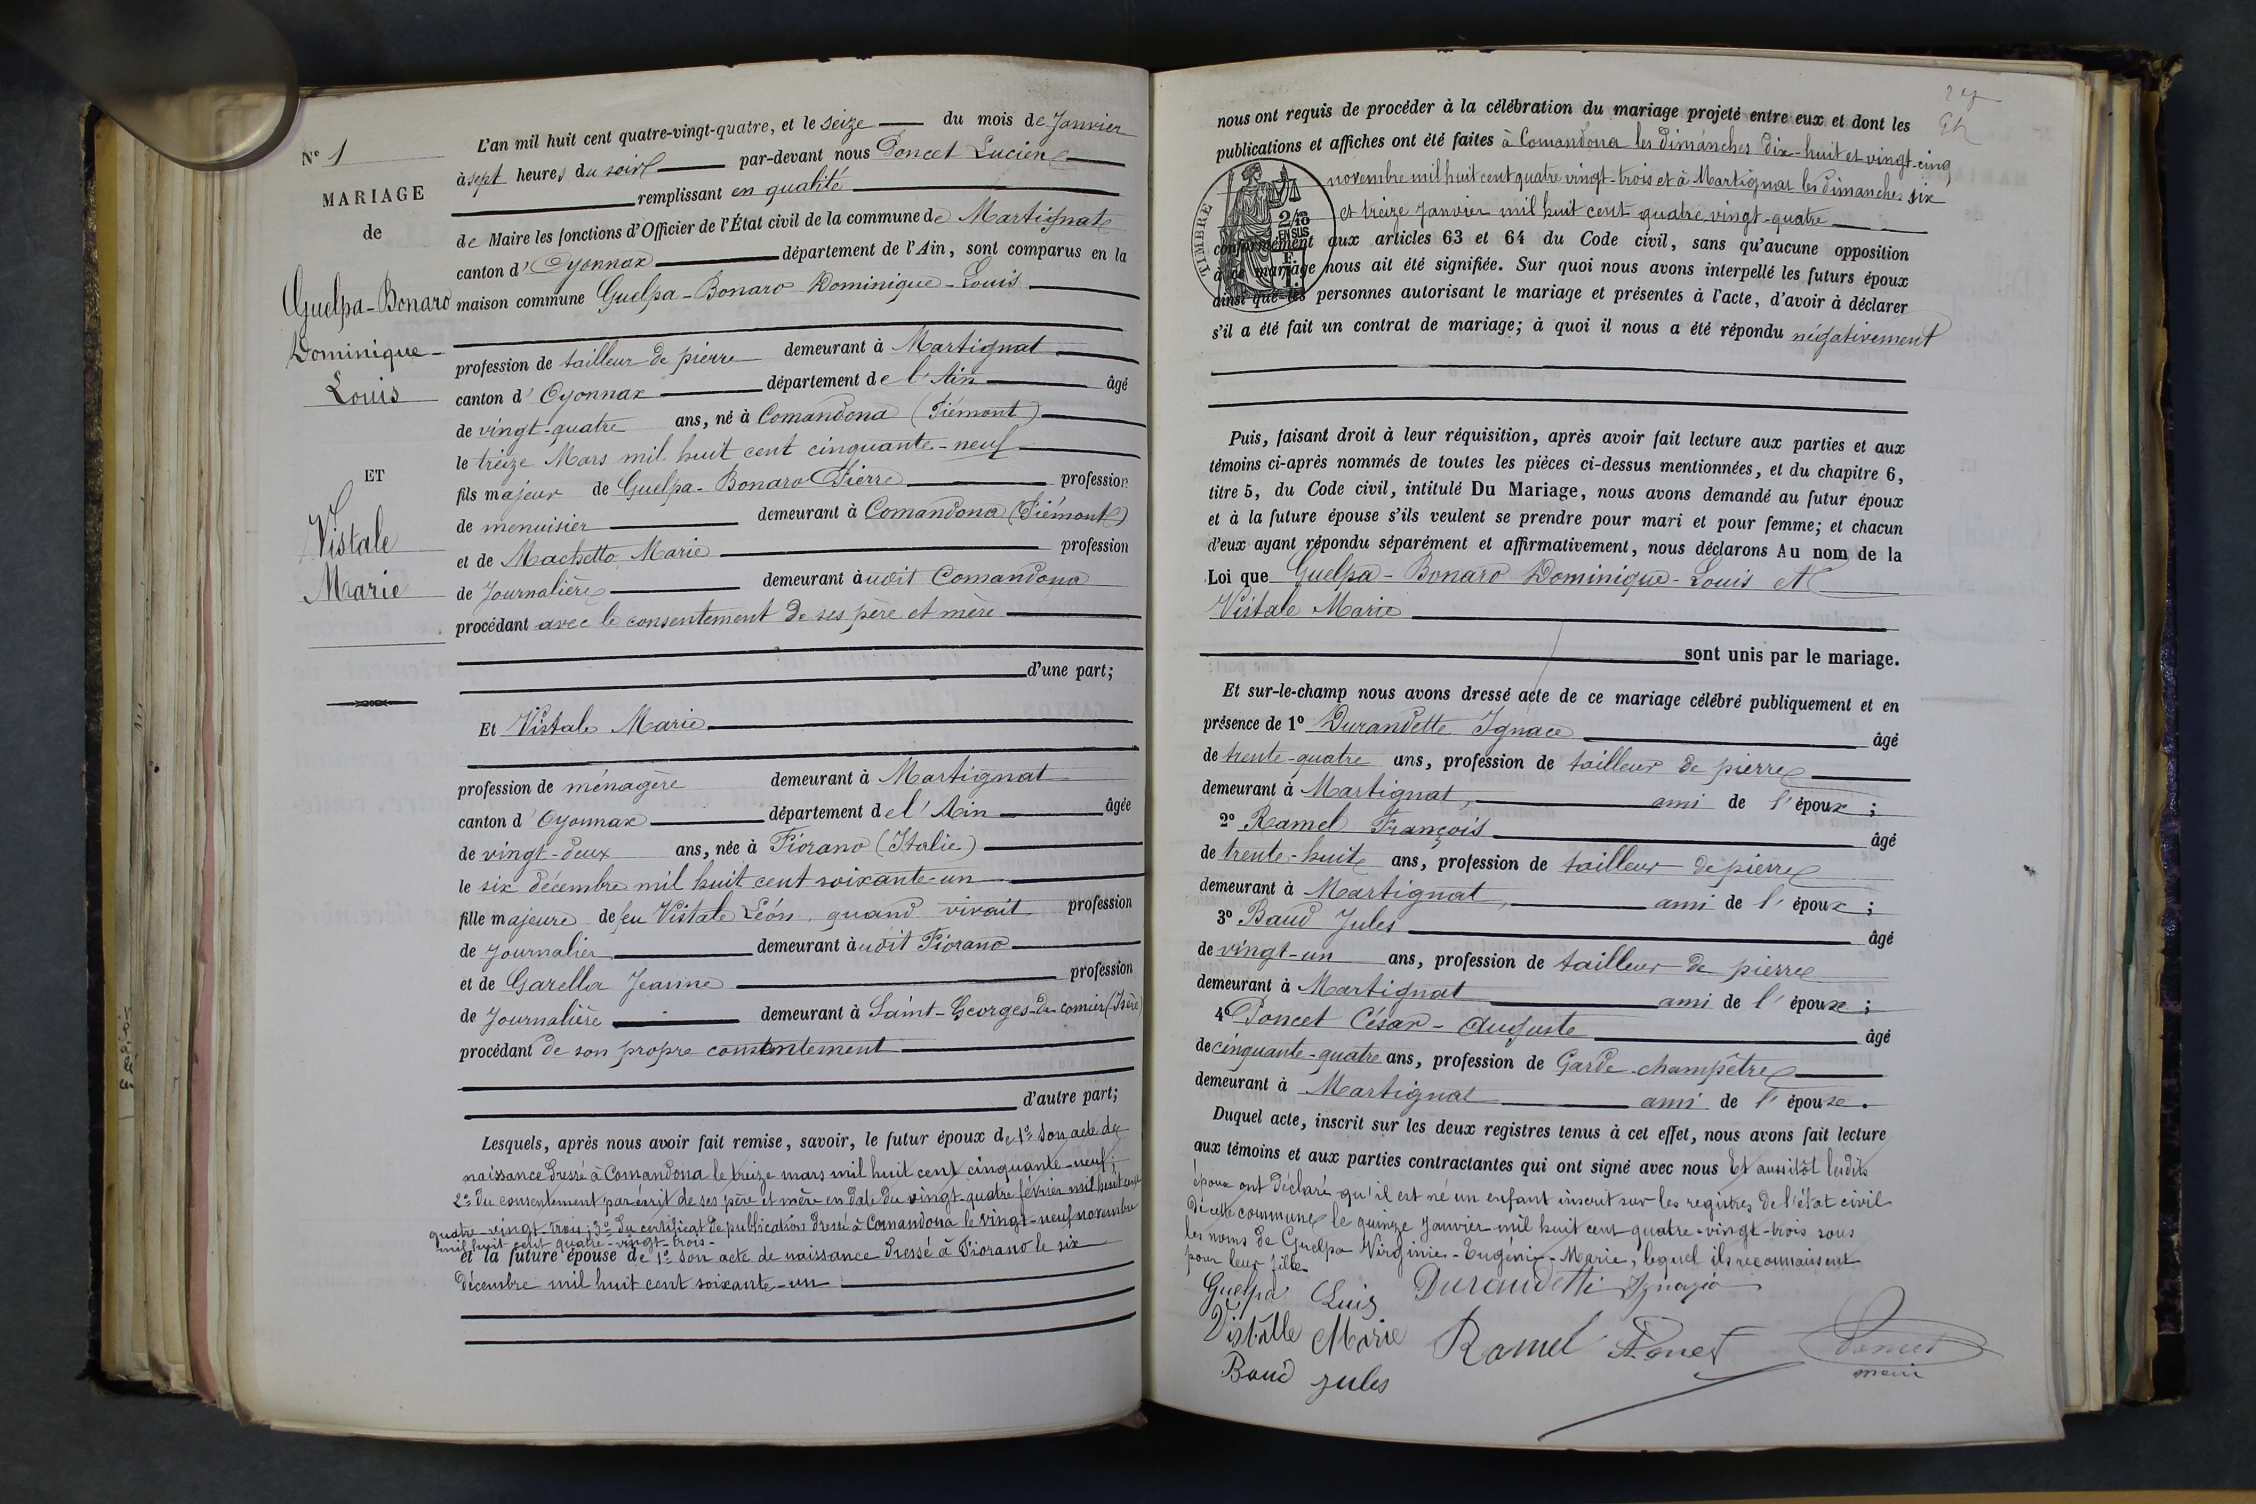 N° 1
MARIAGE
de
Guelpa-Bonaro
Dominique-
Louis
ET
Vistale
Marie
L'an mil huit cent quatre-vingt-quatre, et le seize du mois de Janvier
à sept heures du soir par-devant nous Poncet Lucien
remplissant en qualité
de Maire les fonctions d'Officier de l'État civil de la commune de Martignat
canton d'Oyonnax département de l'Ain, sont comparus en la
maison commune Guelpa-Bonaro Dominique-Louis
profession de tailleur de pierre demeurant à Martignat
canton d'Oyonnax département de l'Ain âgé
de vingt-quatre ans, né à Comandona (Piémont)
le treize Mars mil huit cent cinquante-neuf
fils majeur de Guelpa-Bonaro Pierre profession
de menuisier demeurant à Comandona (Piémont)
et de Machetto Marie profession
de Journalière demeurant audit Comandona
procédant avec le consentement de ses père et mère
d'une part;
Et Vistale Marie
profession de ménagère demeurant à Martignat
canton d'Oyonnax département de l'Ain âgée
de vingt-deux ans, née à Fiorano (Italie)
le six décembre mil huit cent soixante-un
fille majeure de feu Vistale Léon quand vivait profession
de Journalier demeurant audit Fiorano
et de Garella Jeanne profession
de Journalière demeurant à Saint-Georges-de-comier (Isère)
procédant de son propre consentement
d'autre part;
Lesquels, après nous avoir fait remise, savoir, le futur époux de 1° Son acte de
naissance dressé à Comandona le treize mars mil huit cent cinquante-neuf;
2° du consentement par écrit de ses père et mère en date du vingt-quatre février mil huit cent
quatre-vingt-trois; 3° du certificat de publication dressé à Comandona le vingt-neuf novembre
mil huit cent quatre-vingt-trois-
et la future épouse de 1° son acte de naissance dressé à Fiorano le six
décembre mil huit cent soixante-un
nous ont requis de procéder à la célébration du mariage projeté entre eux et dont les
publications et affiches ont été faites à Comandona les dimanches dix-huit et vingt-cinq
novembre mil huit cent quatre vingt-trois et à Martignat les dimanches six
et treize Janvier mil huit cent quatre vingt-quatre
TIMBRE
2/10
EN SUS
conformément aux articles 63 et 64 du Code civil, sans qu'aucune opposition
à ce mariage nous ait été signifiée. Sur quoi nous avons interpellé les futurs époux
ainsi que les personnes autorisant le mariage et présentes à l'acte, d'avoir à déclarer
s'il a été fait un contrat de mariage; à quoi il nous a été répondu négativement
Puis, faisant droit à leur réquisition, après avoir fait lecture aux parties et aux
témoins ci-après nommés de toutes les pièces ci-dessus mentionnées, et du chapitre 6,
titre 5, du Code civil, intitulé Du Mariage, nous avons demandé au futur époux
et à la future épouse s'ils veulent se prendre pour mari et pour femme; et chacun
d'eux ayant répondu séparément et affirmativement, nous déclarons Au nom de la
Loi que Guelpa-Bonaro Dominique-Louis et
Vistale Marie
sont unis par le mariage.
Et sur-le-champ nous avons dressé acte de ce mariage célébré publiquement et en
présence de 1° Durandette Ignace âgé
de trente-quatre ans, profession de tailleur de pierre
demeurant à Martignat, ami de l'époux;
2° Ramel François âgé
de trente-huit ans, profession de tailleur de pierre
demeurant à Martignat, ami de l'époux;
3° Baud Jules âgé
de vingt-un ans, profession de tailleur de pierre
demeurant à Martignat ami de l'épouse;
4° Poncet César-Auguste âgé
de cinquante-quatre ans, profession de Garde-champêtre
demeurant à Martignat ami de l'épouse.
Duquel acte, inscrit sur les deux registres tenus à cet effet, nous avons fait lecture
aux témoins et aux parties contractantes qui ont signé avec nous Et aussitôt lesdits
époux ont déclaré qu'il est né un enfant inscrit sur les registres de l'état civil
de cette commune le quinze Janvier mil huit cent quatre-vingt-trois sous
les noms de Guelpa Virginie-Eugénie-Marie, lequel ils reconnaissent
pour leur fille
Guelpa Luis Durandetti Ignazio
Vistalle Marie Ramel Poncet
Baud Jules Poncet
maire